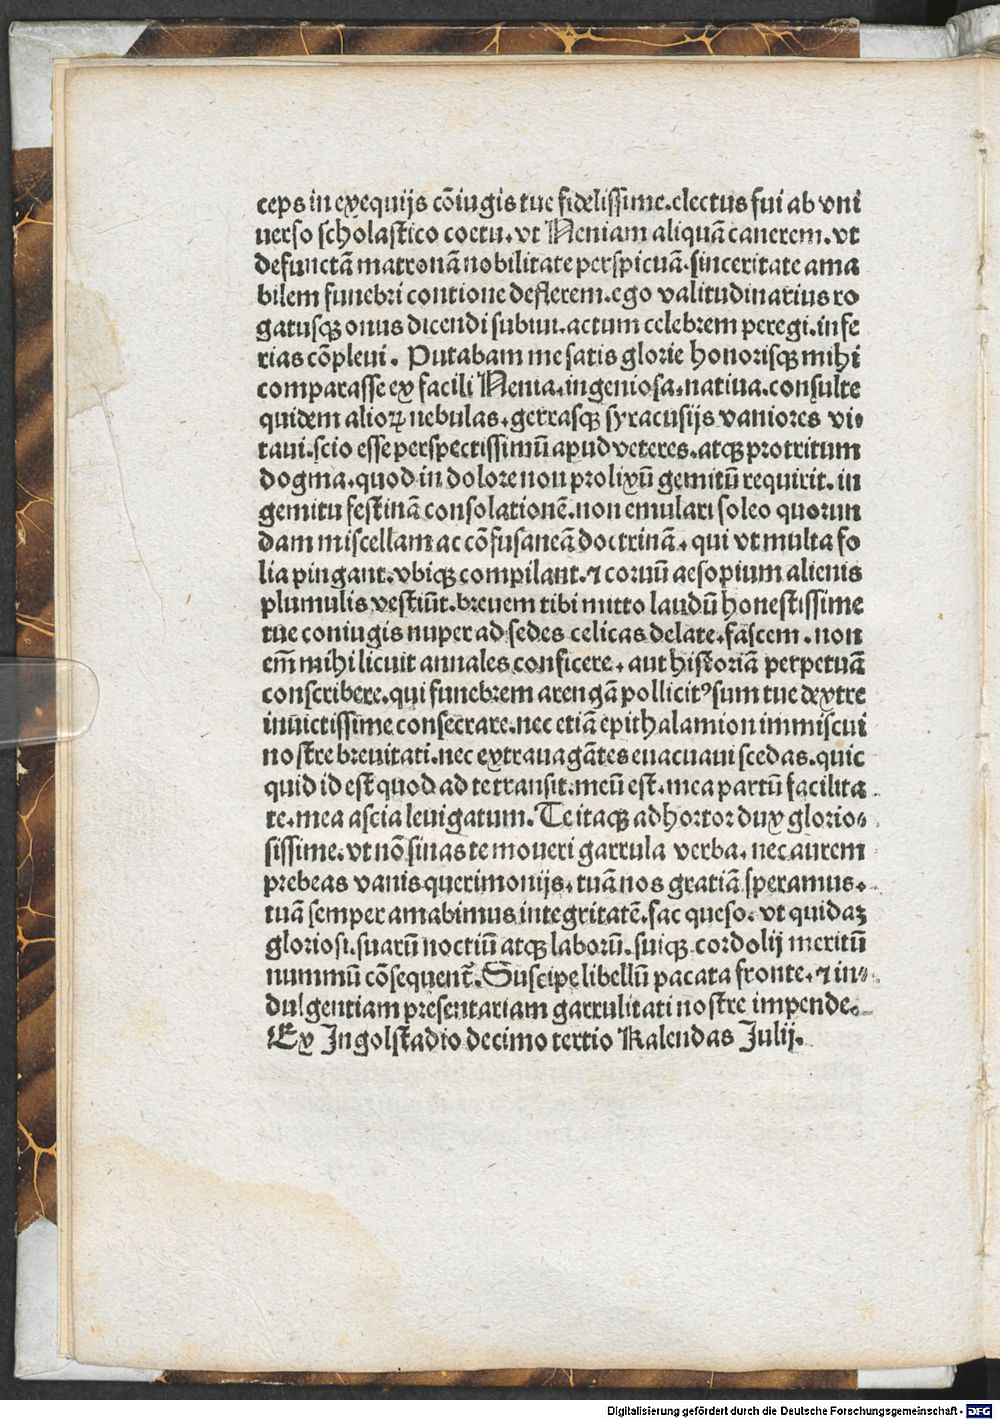 ceps in exequijs cōiugis tue fidelissime.electus fui ab vni
uerso scholastico coetu.vt Neniam aliquā canerem.vt
defunctā matronā nobilitate perspicuā.sinceritate ama
bilem funebri contione deflerem.ego valitudinarius ro
gatusqꝫ onus dicendi subiui.actum celebrem peregi.infe
rias cōpleui. Putabam me satis glorie honorisqꝫ mihi
comparasse ex facili Nenia.ingeniosa.natiua.consulte
quidem alioꝝ nebulas.gerrasqꝫ syracusijs vaniores vi-
taui.scio esse perspectissimū apud veteres.atqꝫ protritum
dogma.quod in dolore non prolixū gemitū requirit.in
gemitu festinā consolationē.non emulari soleo quorun
dam miscellam ac cōfusaneā doctrinā.qui vt multa fo
lia pingant.vbiqꝫ compilant.⁊ coruū aesopium alienis
plumulis vestiūt.breuem tibi mitto laudū honestissime
tue coniugis nuper ad sedes celicas delate.fascem.non
em̄ mihi licuit annales conficere.aut historiā perpetuā
conscribere.qui funebrem arengā pollicitꝰ sum tue dextre
inuictissime consecrare.nec etiā epithalamion immiscui
nostre breuitati.nec extrauagātes euacuaui scedas.quic
quid id est quod ad te transit.meū est.mea partū facilita
te.mea ascia leuigatum. Te itaqꝫ adhortor dux glorio-
sissime.vt nō sinas te moueri garrula verba.nec aurem
prebeas vanis querimonijs.tuā nos gratiā speramus.
tuā semper amabimus integritatē.fac queso.vt quidaꝫ
gloriosi.suarū noctiū atqꝫ laborū.suiqꝫ cordolij meritū
nummū cōsequent̄. Suscipe libellū pacata fronte.⁊ in-
dulgentiam presentariam garrulitati nostre impende.
Ex Ingolstadio decimo tertio Kalendas Julij.
Digitalisierung gefördert durch die Deutsche Forschungsgemeinschaft - DFG